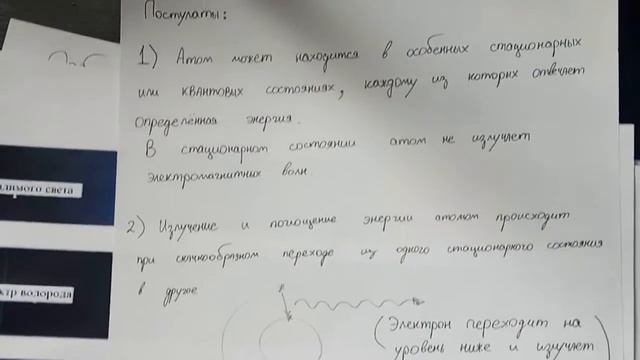 Постулаты:
1) Атом может находится в особенных стационарных
или квантовых состояниях, каждому из которых отвечает
определённая энергия.
В стационарном состоянии атом не излучает
электромагнитних волн
2) Излучение и поглощение энергии атомом происходит
при скачкообразном переходе из одного стационарного состояния
в другое
(Электрон переходит на
уровень ниже и излучает
димого света
ктр водорода